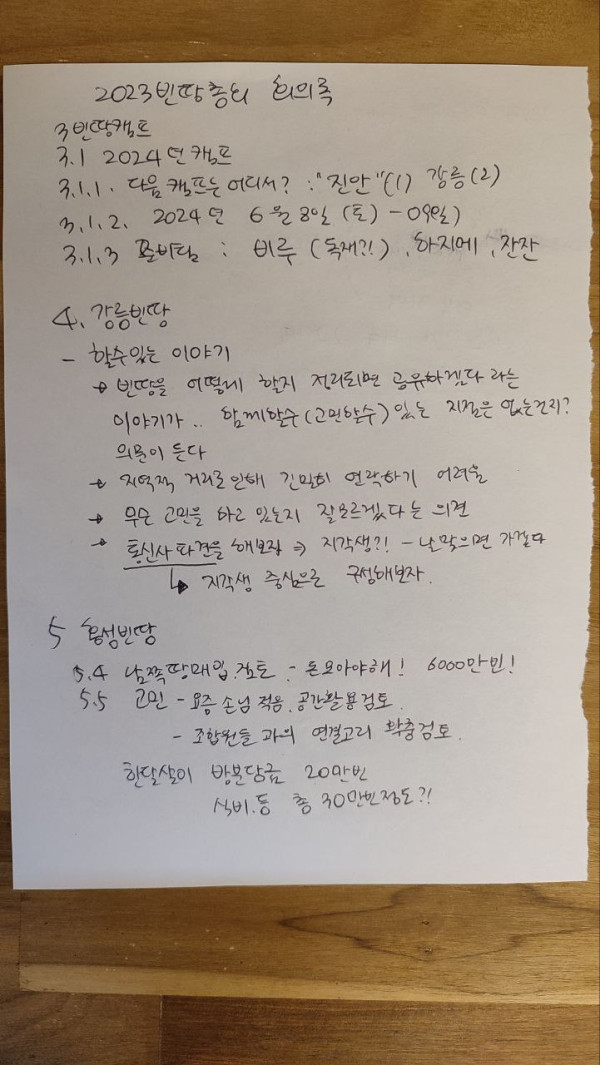 2023빈땅총회 회의록
3 빈땅캠프
3.1 2024년 캠프
3.1.1. 다음 캠프는 어디서? : "진안"(1) 강릉(2)
3.1.2. 2024년 6월 8일 (토) - 09일)
3.1.3 준비팀 : 비루 (독재?!), 하지메, 잔잔
4. 강릉빈땅
- 할수있는 이야기
→ 빈땅을 어떻게 할지 정리되면 공유하겠다 라는
이야기가.. 함께할수(고민할수) 있는 지점은 없는건지?
의문이 든다
→ 지역적 거리로 인해 긴밀히 연락하기 어려움
→ 무슨 고민을 하고 있는지 잘모르겠다는 의견
→ 통신사 파견을 해보자 ⇒ 지각생?! - 날맞으면 가겠다
↳ 지각생 중심으로 구성해보자.
5 홍성빈땅
5.4 남쪽땅매입 검토 - 돈모아야해! 6000만빈!
5.5 고민 - 요즘 손님 적음. 공간활용검토.
- 조합원들 과의 연결고리 확충검토.
한달살이 빈분담금 20만빈
식비.등 총 30만빈정도?!